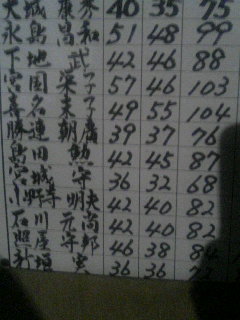 大城 康秀 40 35 75
永島 昌和 51 48 99
下地 武 42 46 88
宮国 栄 57 46 103
喜名 49 55 104
勝連 朝廣 39 37 76
島田 勲 42 45 87
宮城 守 36 32 68
小野寺 明夫 42 40 82
石川 元尚 42 40 82
照屋 守邦 46 38 84
新垣 実 36 36 72